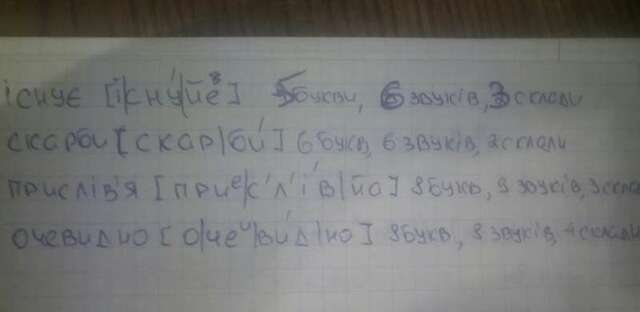 існує [і|сну́|йеᵉ] 5 букви, 6 звуків, 3 склади
скарби [скар|би́] 6 букв, 6 звуків, 2 склади
прислів'я [приᵉ|с'л'і́в|йа] 8 букв, 9 звуків, 3 склади
очевидно [о|чеᶸ|ви́д|но] 8 букв, 8 звуків, 4 склади